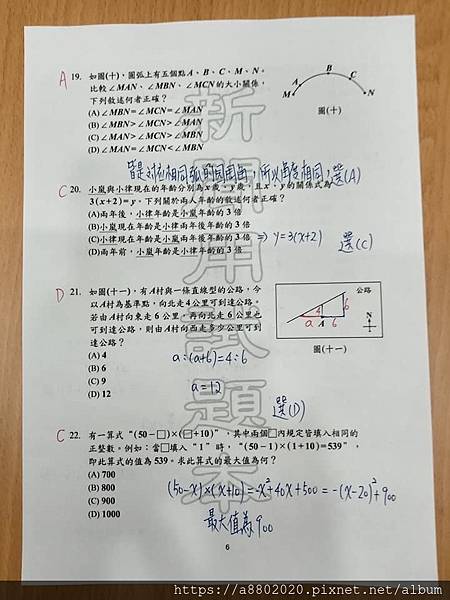 A 19. 如圖(十)，圓弧上有五個點A、B、C、M、N。
比較∠MAN、∠MBN、∠MCN的大小關係，
下列敘述何者正確？
(A) ∠MBN=∠MCN=∠MAN
(B) ∠MBN>∠MCN>∠MAN
(C) ∠MCN>∠MBN>∠MAN
(D) ∠MAN>∠MCN>∠MBN
A B C M N
圖(十)
皆是對相同弧的圓周角，所以角度相同，選(A)
C 20. 小嵐與小律現在的年齡分別為x歲、y歲，且x、y的關係式為
3(x+2)=y。下列關於兩人年齡的敘述何者正確？
(A)兩年後，小律年齡是小嵐年齡的3倍
(B)小嵐現在年齡是小律兩年後年齡的3倍
(C)小律現在年齡是小嵐兩年後年齡的3倍 ⇒ y=3(x+2)
(D)兩年前，小律年齡是小嵐年齡的3倍
選(C)
D 21. 如圖(十一)，有A村與一條直線型的公路，今
以A村為基準點，向北走4公里可到達公路。
若由A村向東走6公里，再向北走6公里也
可到達公路，則由A村向西走多少公里可到
達公路？
(A) 4
(B) 6
(C) 9
(D) 12
公路
4 6
a A 6 N
圖(十一)
a:(a+6)=4:6
a=12
選(D)
C 22. 有一算式“(50-□)×(□+10)”，其中兩個□內規定皆填入相同的
正整數。例如：當□填入“1”時，“(50-1)×(1+10)=539”，
即此算式的值為539。求此算式的最大值為何？
(A) 700
(B) 800
(C) 900
(D) 1000
(50-x)×(x+10)=-x²+40x+500=-(x-20)²+900
最大值為900
6
新聞用試題本
https://a8802020.pixnet.net/album